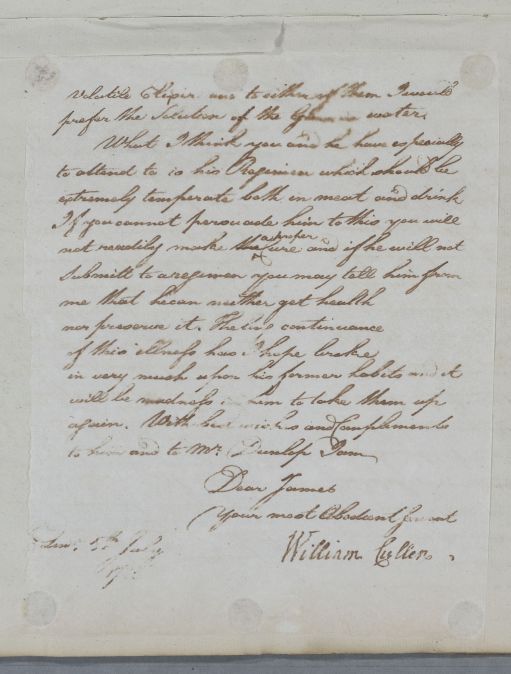 Volatile Elixir and to either of them I would
prefer the Solution of the Gum in water.
What I think you and he have especially
to attend to is his Regimen which should be
extremely temperate both in meat and drink
If you cannot persuade him to this you will
not readily make the a proper Cure and if he will not
Submitt to a regimen you may tell him from
me that he can neither get health
nor preserve it. The long continuance
of this illness has I hope broke
in very much upon his former habits and it
will be madness in him to take them up
again. With best wishes and Complements
to him and to Mr. Dunlop I am
Dear James
Your most Obedient Servant
William Cullen
5th July